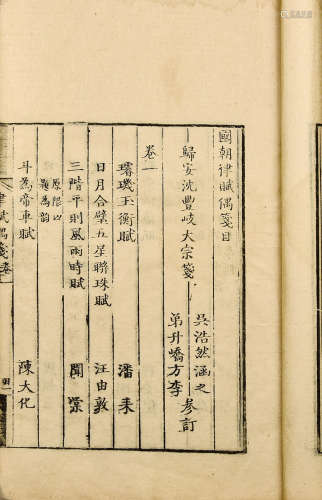 國朝律賦偶箋目
歸安沈豐岐大宗箋
吳浩然涵之
弟升嶠方李
參訂
卷一
璿璣玉衡賦 潘耒
日月合璧五星聯珠賦 汪由敦
三階平則風雨時賦 聞棠
原限以
題為韻
斗為帝車賦 陳大化
律賦偶箋